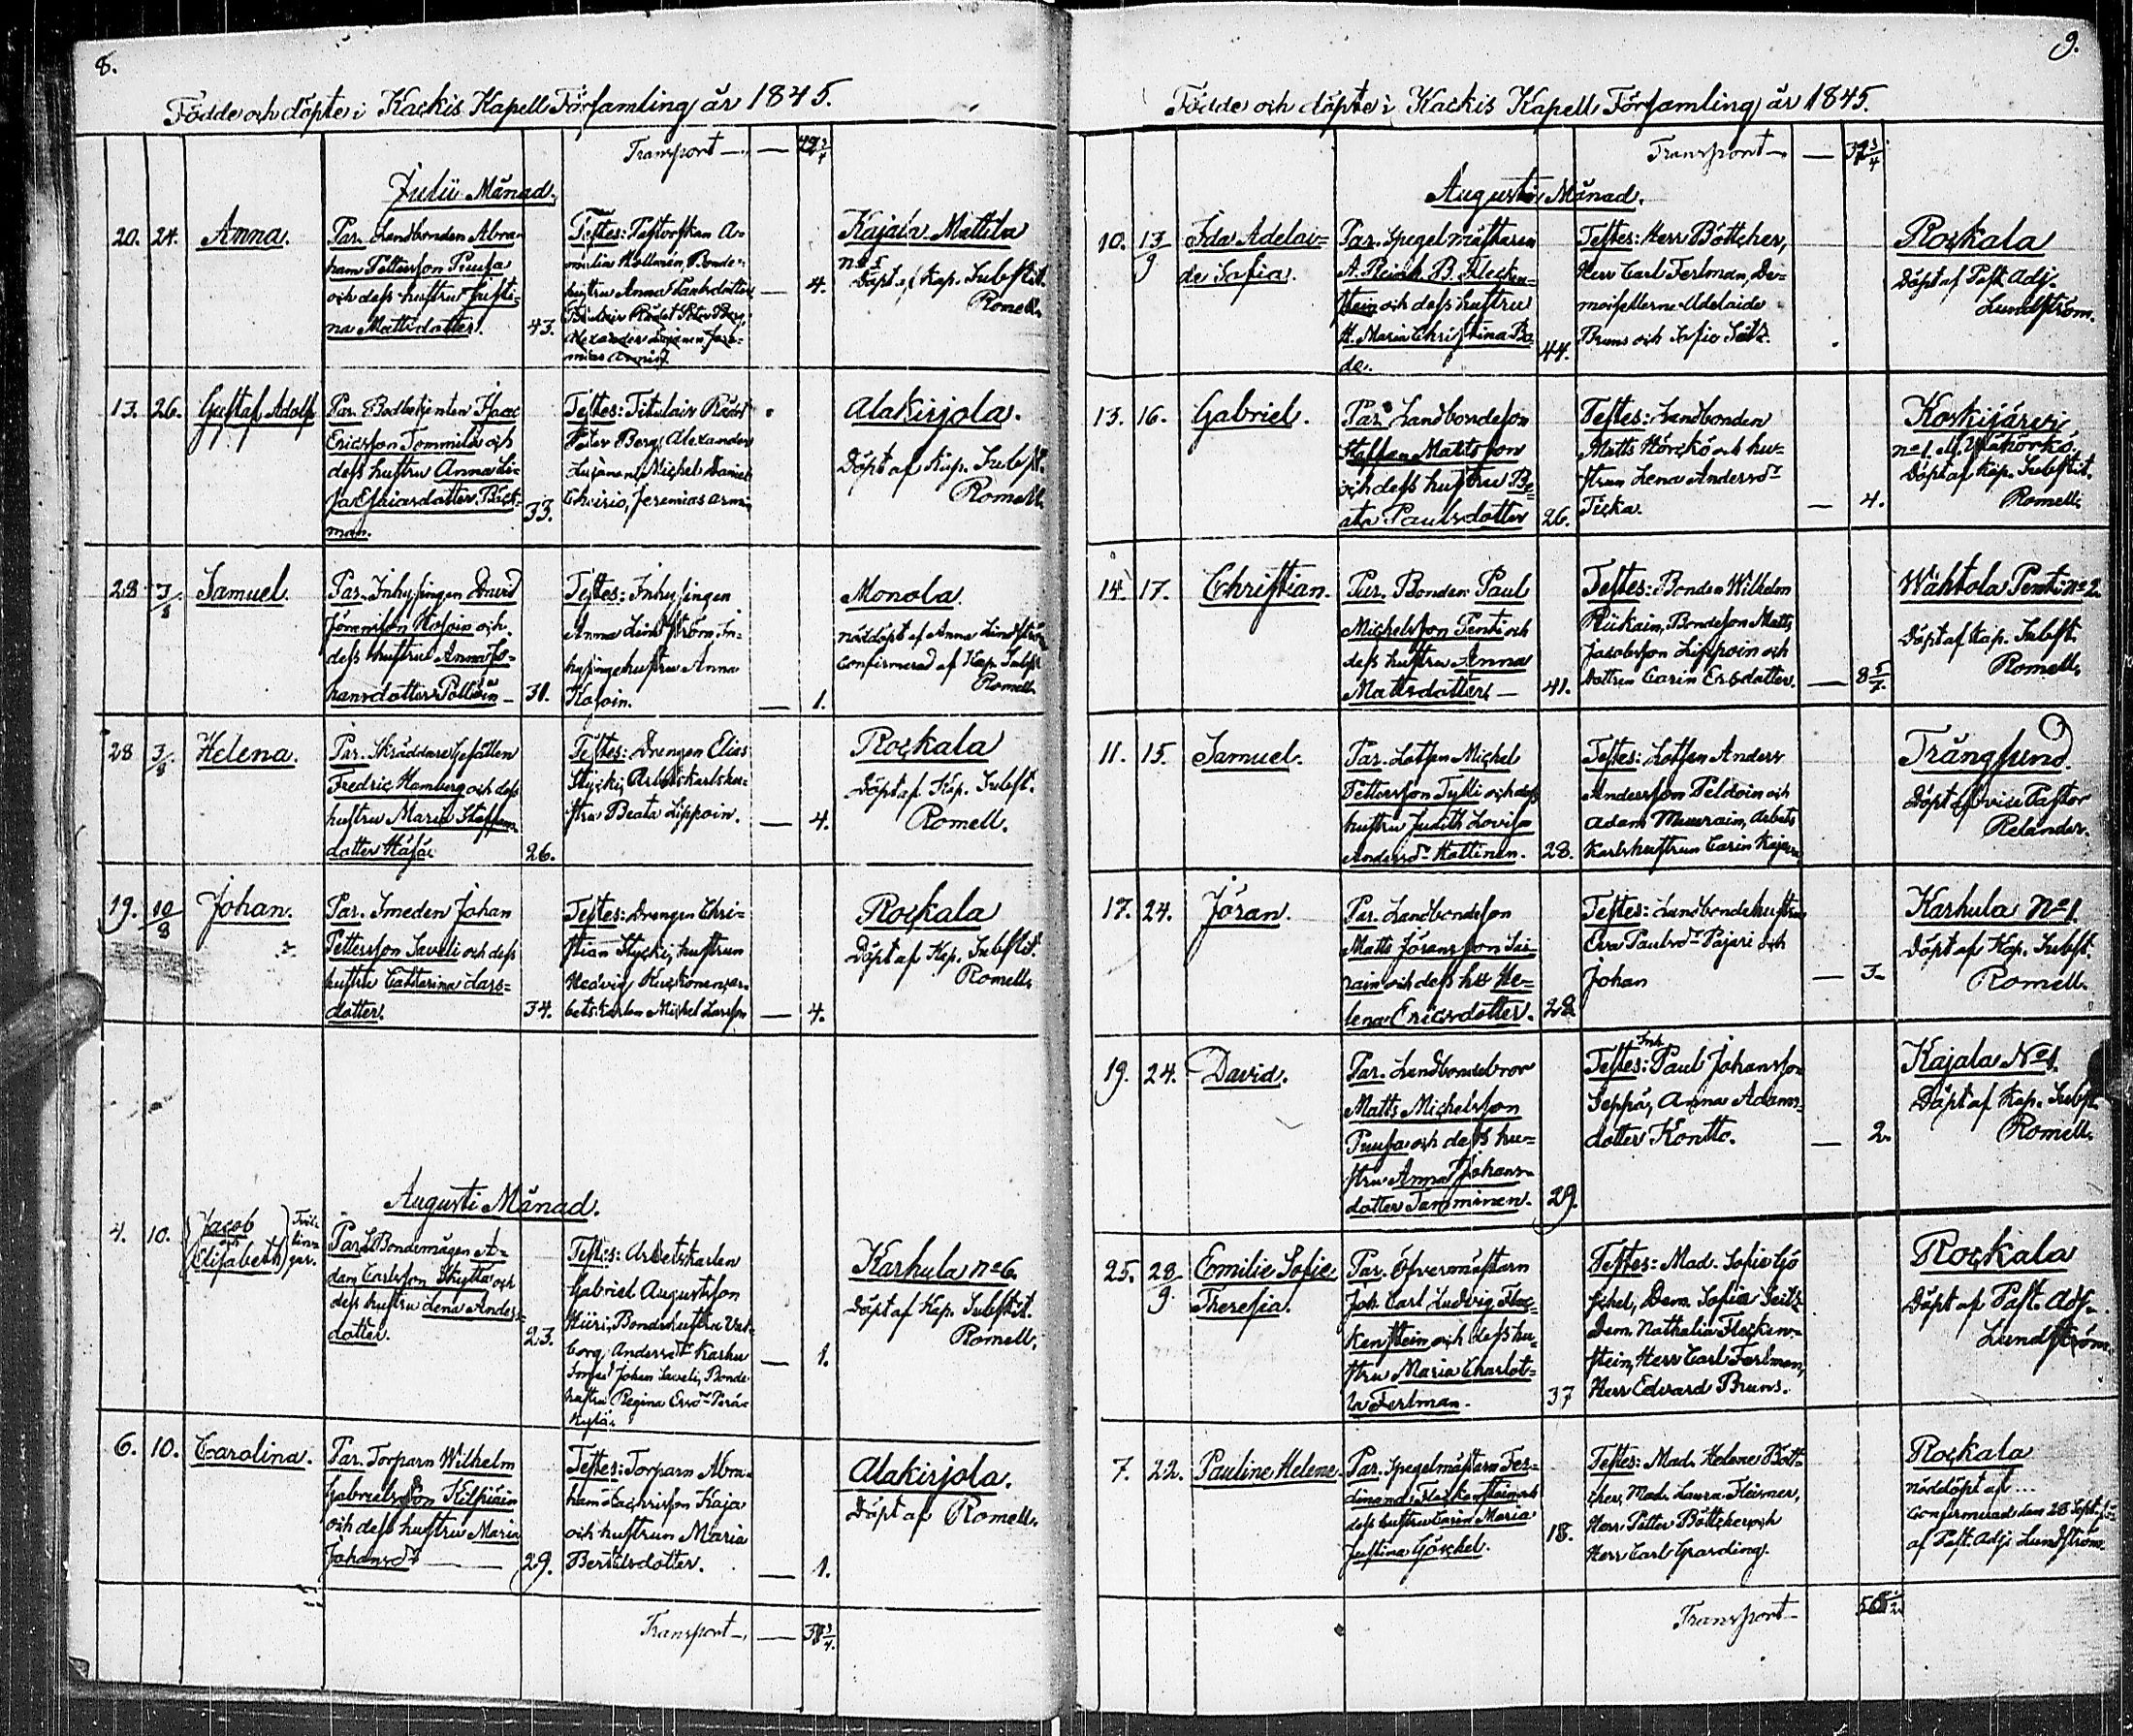 8.
Födde och döpte i Kackis Kapell Församling år 1845.
Transport —
Julii Månad.
20. 24. Anna.
Par. Landbonden Abra-
ham Pettersson Pusa
och dess hustru Justi-
na Mattsdotter. 43.
Testes: Pastorskan A-
malia Hollmén, Bonde-
hustru Anna Paulsdotter
— 4.
Kajala Mattila
No 5
Döpt af Kap. Substit.
Romell.
13. 26. Gustaf Adolf
Par. Bodbetjenten Isaac
Ericsson Tommila och
dess hustru Anna Li-
sa Esaiasdotter Bäck-
man. 33.
Testes: Titulair Rådet
Peter Berg, Alexander
Michel Daniels
Jeremias
Alakirjola.
Döpt af Kap. Subst.
Romell.
28 3/8 Samuel
Par. Inhysingen David
Göransson Kosoin och
dess hustru Anna Jo-
hansdotter — 31.
Testes: Inhysingen
Anna Lindström, In-
hysingehustru Anna
Kosoin. — 1.
Monola.
nöddöpt af Anna Lindström
Confirmerad af Kap. Subst
Romell.
28 3/8 Helena.
Par. Skräddare Gesällen
Fredric Hamberg och dess
hustru Maria Steffans-
dotter Häsä. 26.
Testes: Drengen Elias
Stycki, Arbetskarlshu-
stru Beata Lippoin. — 4.
Rockala
Döpt af Kap. Subst.
Romell.
19. 10/8 Johan.
Par. Smeden Johan
Pettersson Saveli och dess
hustru Catharina Lars-
dotter. 34.
Testes: Drengen Chri-
stian Stycki, hustrun
Hedvig Kuckonen, ar-
betskarlen Michel Larsson — 4.
Rockala
Döpt af Kap. Substit.
Romell.
Augusti Månad.
4. 10. Jacob
och
Elisabeth
Tvil-
lin-
gar.
Par. Bondemågen A-
dam Carlsson Skyttä och
dess hustru Lena Anders-
dotter. 23.
Testes: Arbetskarlen
Gabriel Augustsson
Hüri, Bondehustru Val-
borg Andersdr Karhu
Johan Saveli, Bonde-
hustru Regina Ersdr Perä-
kylä. — 1.
Karhula No 6.
Döpt af Kap. Substit.
Romell.
6. 10. Carolina.
Par. Torparn Wilhelm
Gabrielsson Kilpiäin
och dess hustru Maria
Johansdr — 29.
Testes: Torparn Abra-
ham Zachrisson Kaja
och hustrun Maria
Bertilsdotter. — 1.
Alakirjola.
Döpt af Romell.
Transport —
9.
Födde och döpte i Kackis Kapell Församling år 1845.
Transport —
Augusti Månad.
10. 13/9 Ida Adelai-
de Sofia.
Par. Spegelmästaren
A. Rich. B. Flecken-
stein och dess hustru
H. Maria Christina Bo-
de. 44.
Testes: Herr Böttcher,
Herr Carl Ferlman, De-
moisellerne Adelaide
Bruns och Sofie Seitz.
Rockala
Döpt af Past. Adj.
Lundström.
13. 16. Gabriel.
Par. Landbondeson
Staffan Mattsson
och dess hustru Be-
ata Paulsdotter 26.
Testes: Landbonden
Matts Hörckö och hu-
strun Lena Andersdr
Ticka. — 4.
Koskijärvi,
No 1.
Döpt af Kap. Substit.
Romell.
14. 17. Christian.
Par. Bonden Paul
Michelsson Penti och
dess hustru Anna
Mattsdotter. — 41.
Testes: Bonden Wilhelm
Riikain, Bondeson Matts
Jacobsson Lippoin och
dottren Carin Ersdotter. —
Wahtola Penti No 2.
Döpt af Kap. Subst.
Romell.
11. 15. Samuel.
Par. Lotsen Michel
Pettersson Tylli och dess
hustru Judith Lovisa
Andersdr Hattinen. 28.
Testes: Lotsen Anders
Andersson Peldoin och
Adam Meurain, Arbets
Karlshustrun Carin
Trångsund.
Döpt af vice Pastor
Relander.
17. 24. Jöran.
Par. Landbondeson
Matts Göransson Säi-
räin och dess hu He-
lena Ericsdotter. 28
Testes: Landbondehustru
Eva Paulsdr Pajari och
Johan — 3
Karhula No 1.
Döpt af Kap. Subst.
Romell.
19. 24. David.
Par. Landbondebror
Matts Michelsson
Pusa och dess hu-
stru Anna Johans-
dotter Tamminen. 29.
Inh.
Testes: Paul Johansson
Seppä, Anna Adams-
dotter Kontto. — 2.
Kajala No 1.
Döpt af Kap. Subst.
Romell.
25. 28/9 Emilie Sofie
Theresia.
Par. Öfvermästarn
Joh. Carl Ludvig Flec-
kenstein och dess hu-
stru Maria Charlot-
ta Ferlman. 37
Testes: Mad. Sofie Gö-
schel, Dem. Sofia Seitz
Dem. Nathalia Flecken-
stein, Herr Carl Ferlman,
Herr Edvard Bruns.
Rockala
Döpt af Past. Adj.
Lundström.
7. 22. Pauline Helene.
Par. Spegelmästarn Fer-
dinand Fleckenstein och
dess hustru Carin Maria
Justina Göschel. 18.
Testes: Mad. Helene Bött-
cher, Mad. Laura Fleisner,
Herr Petter Böttcher och
Herr Carl Grarding.
Rockala
nöddöpt af ...
Confirmerad den 28 Sept.
af Past. Adj. Lundström.
Transport —